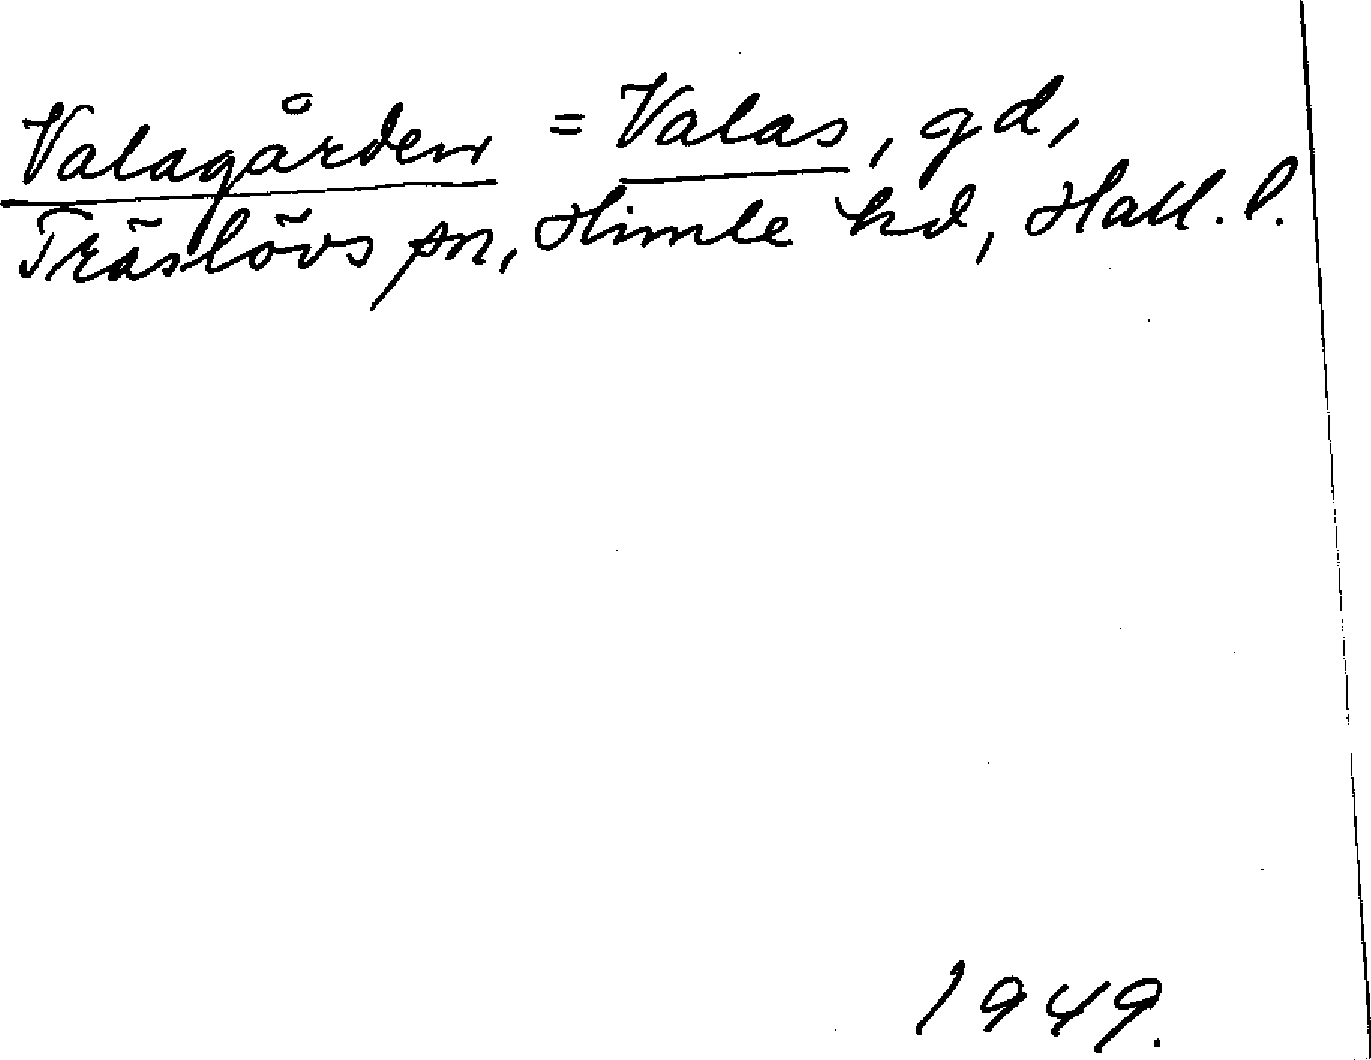 Valagården = Valas, gd,
Träslövs sn, Himle hd, Hall. l.
1949.